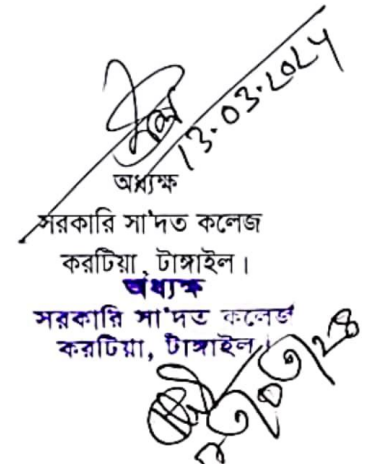 13.03.2024
অধ্যক্ষ
সরকারি সা'দত কলেজ
করটিয়া, টাঙ্গাইল।
অধ্যক্ষ
সরকারি সা'দত কলেজ
করটিয়া, টাঙ্গাইল।